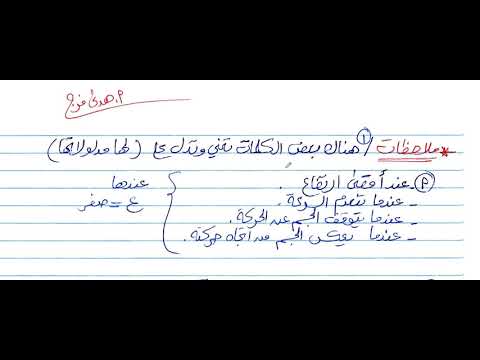 م. هدى فرج
* ملاحظات / ① هناك بعض الكلمات تعني وتدل على (لها مدلولاتها)
Ⓟ عند أقصى ارتفاع .
- عندما تنعدم السرعة .
- عندما يتوقف الجسم عن الحركة .
- عندما يعكس الجسم من اتجاه حركته .
عندها
ع = صفر